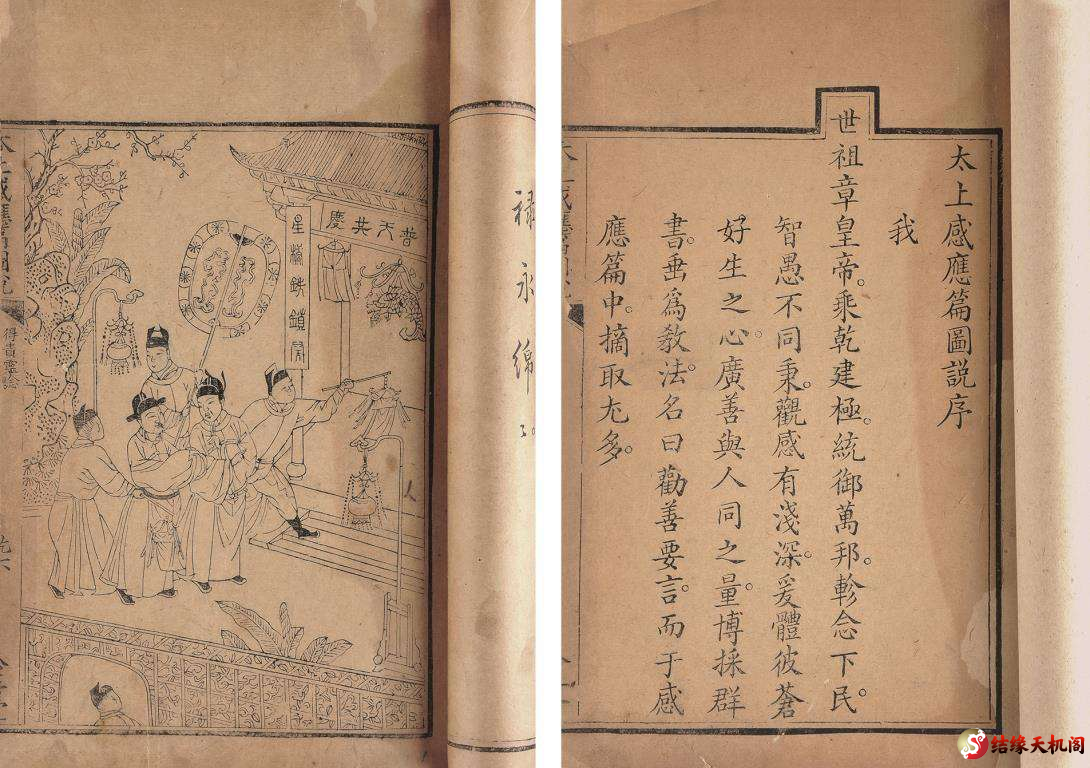 太上感應篇圖説序
我
世祖章皇帝。乘乾建極。統御萬邦。軫念下民。
智愚不同秉。觀感有淺深。爰體彼蒼
好生之心。廣善與人同之量。博採群
書。垂爲教法。名曰勸善要言。而于感
應篇中。摘取尤多。
禄永綿
普天共慶
星橋鉄鎖開
结缘天机阁